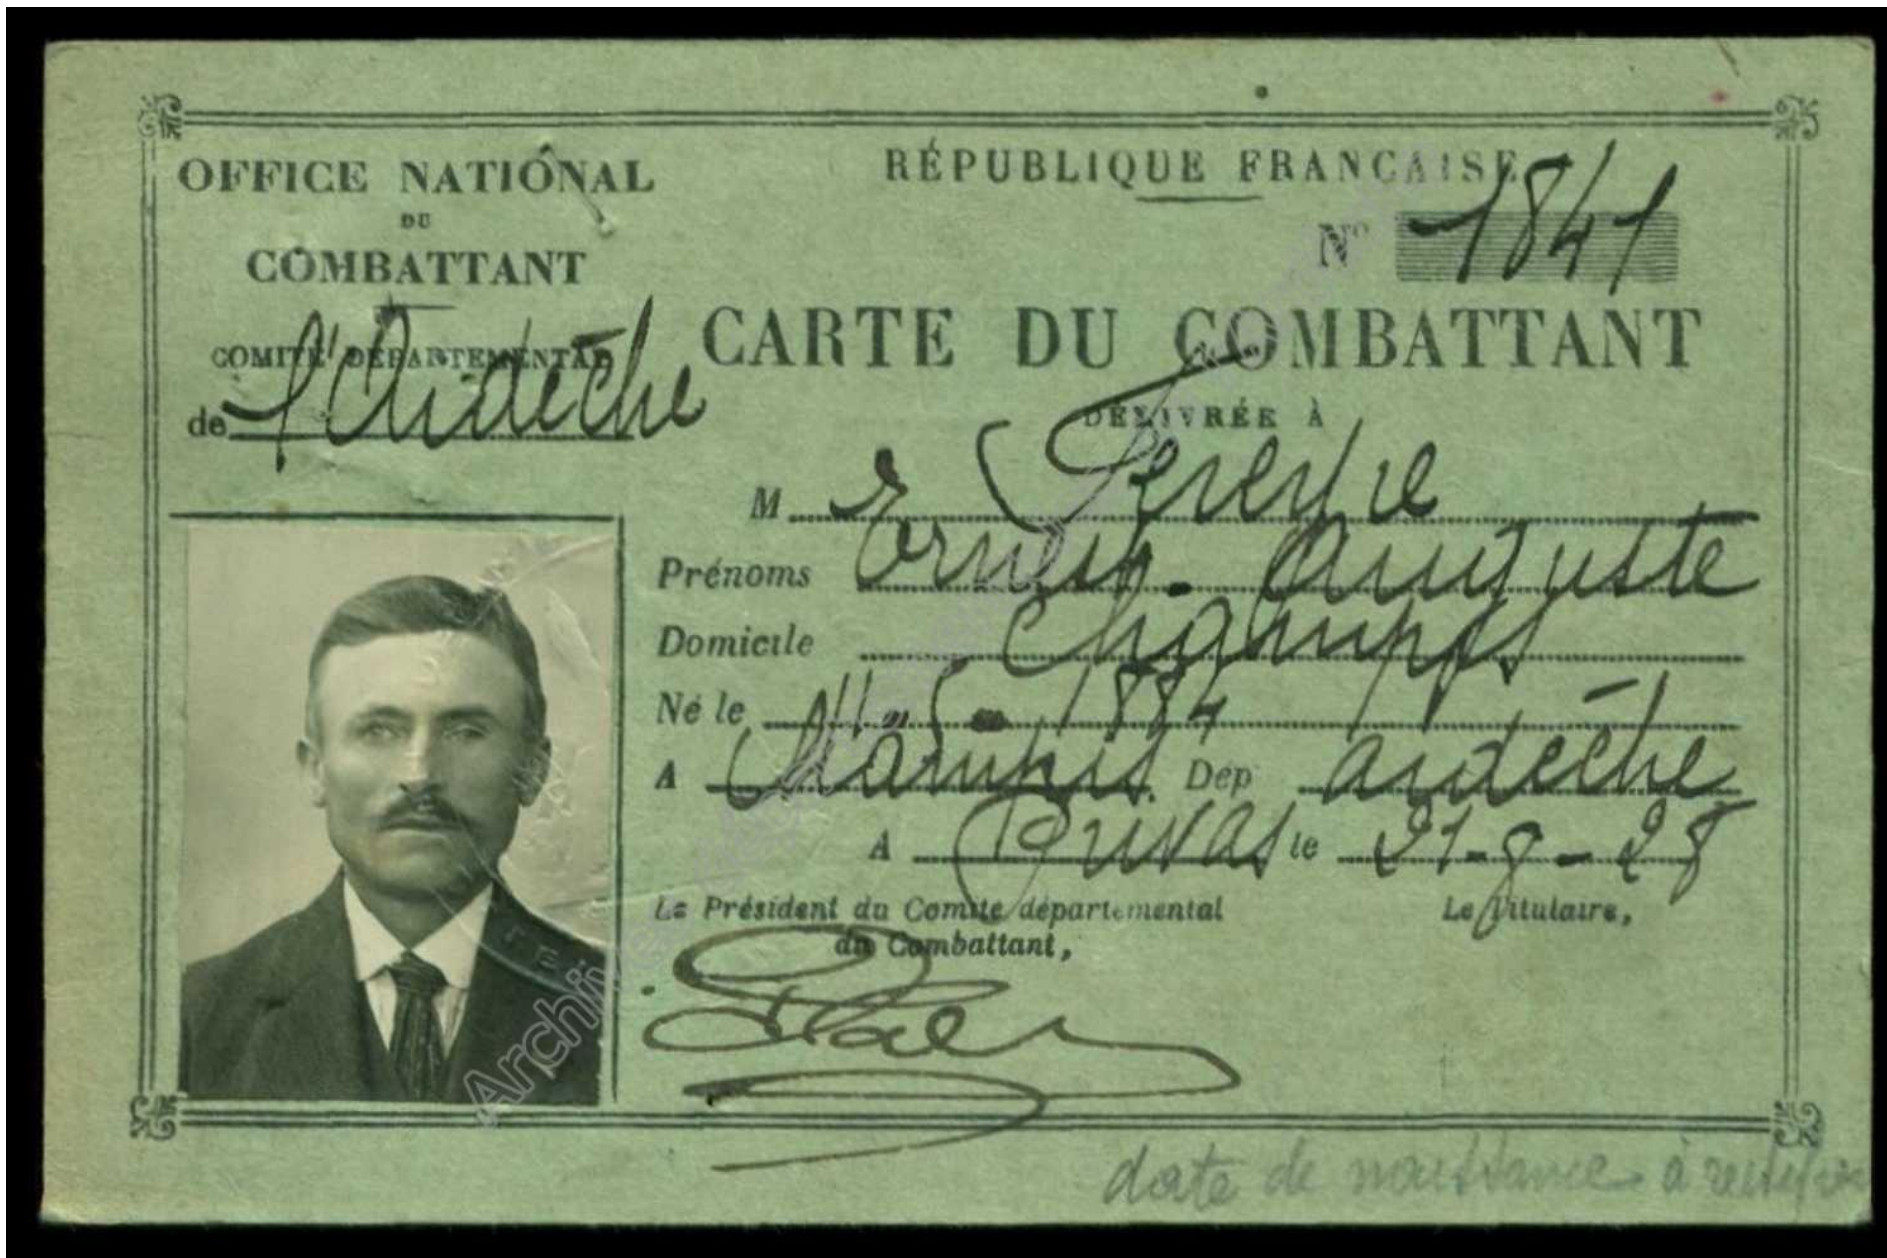 OFFICE NATIONAL
DU
COMBATTANT
COMITÉ DÉPARTEMENTAL
de l'Ardèche
RÉPUBLIQUE FRANÇAISE
N° 1841
CARTE DU COMBATTANT
DÉLIVRÉE À
M
Prénoms Ernest-Auguste
Domicile
Né le 1884
A Dep ardèche
A Privas le 21-8-28
Le Président du Comité départemental
du Combattant,
Le Titulaire,
date de naissance à
Archives